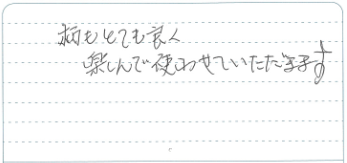 柄もとても良く
楽しんで使わせていただきます